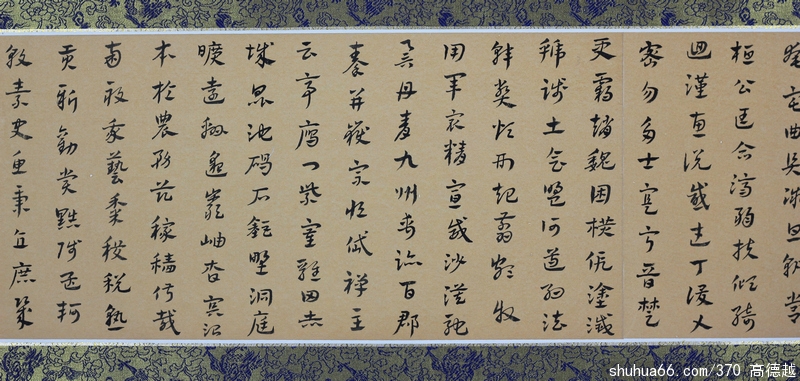 奄宅曲阜微旦孰營
桓公匡合濟弱扶傾綺
迴漢惠說感武丁俊乂
密勿多士寔寧晉楚
更霸趙魏困橫假塗滅
虢踐土會盟何遵約法
韓弊煩刑起翦頗牧
用軍最精宣威沙漠馳
譽丹青九州禹跡百郡
秦并嶽宗恒岱禪主
云亭雁門紫塞雞田赤
城昆池碣石鉅野洞庭
曠遠綿邈巖岫杳冥治
本於農務茲稼穡俶載
南畝我藝黍稷稅熟
貢新勸賞黜陟孟軻
敦素史魚秉直庶幾
shuhua66.com/370 高德越